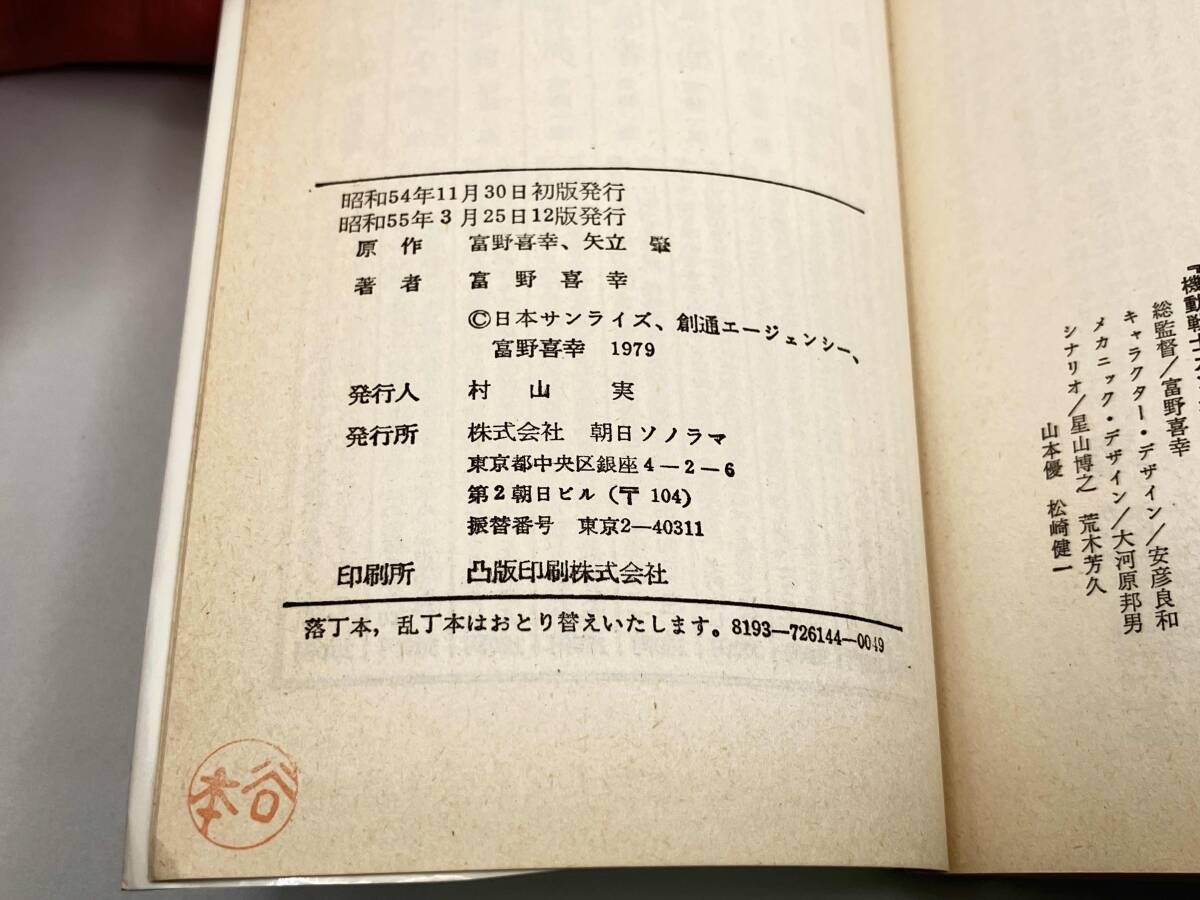 昭和54年11月30日初版発行
昭和55年3月25日12版発行
原作 富野喜幸、矢立 肇
著者 富野喜幸
©日本サンライズ、創通エージェンシー、
富野喜幸 1979
発行人 村山 実
発行所 株式会社 朝日ソノラマ
東京都中央区銀座4—2—6
第2朝日ビル(〒104)
振替番号 東京2—40311
印刷所 凸版印刷株式会社
落丁本,乱丁本はおとり替えいたします。8193—726144—0049
『機動戦士ガ
総監督/富野喜幸
キャラクター・デザイン/安彦良和
メカニック・デザイン/大河原邦男
シナリオ/星山博之 荒木芳久
山本優 松崎健一
谷本